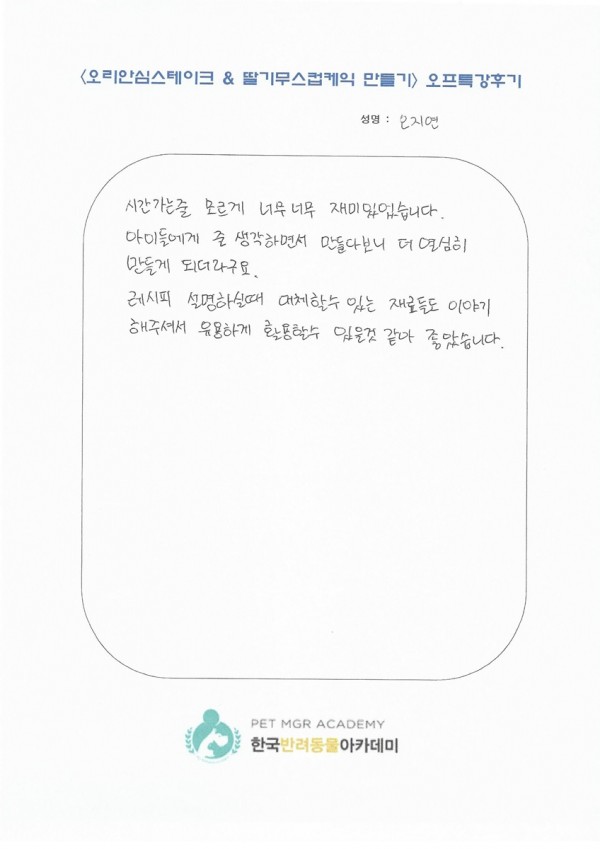 <오리안심스테이크 & 딸기무스컵케익 만들기> 오프특강후기
성명 : 오지연
시간가는줄 모르게 너무너무 재미있었습니다.
아이들에게 줄 생각하면서 만들다보니 더 열심히
만들게 되더라구요.
레시피 설명하실때 대체할수 있는 재료들도 이야기
해주셔서 유용하게 활용할수 있을것 같아 좋았습니다.
PET MGR ACADEMY
한국반려동물아카데미